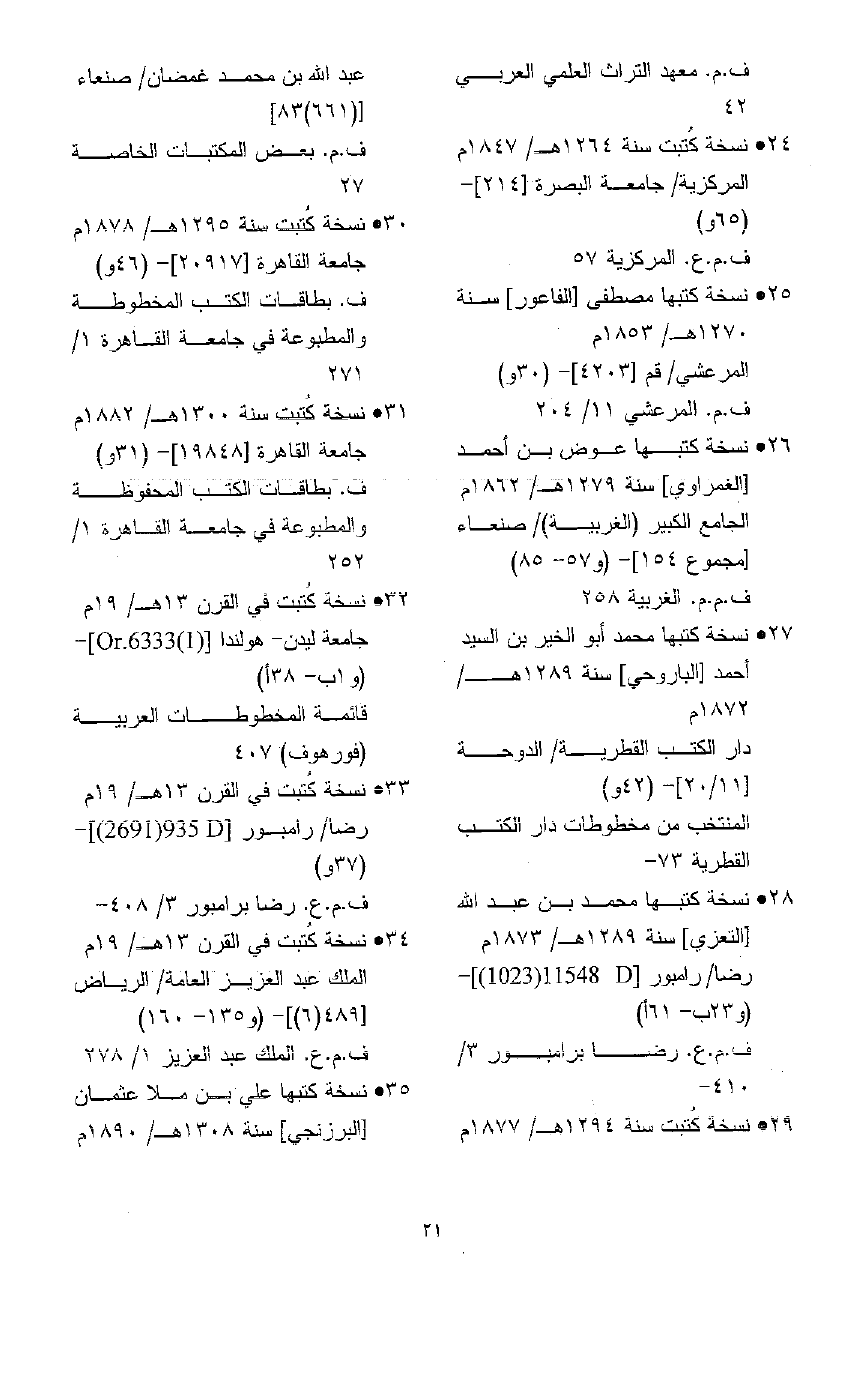 ف.م. معهد التراث العلمي العربي
٤٢
•٢٤ نسخة كُتبت سنة ١٢٦٤هـ/ ١٨٤٧م
المركزية/ جامعة البصرة [٢١٤]-
(٦٥و)
ف.م.ع. المركزية ٥٧
•٢٥ نسخة كتبها مصطفى [الفاعور] سنة
١٢٧٠هـ/ ١٨٥٣م
المرعشي/ قم [٤٢٠٣]- (٣٠و)
ف.م. المرعشي ١١/ ٢٠٤
•٢٦ نسخة كتبها عوض بن أحمد
[الغمراوي] سنة ١٢٧٩هـ/ ١٨٦٢م
الجامع الكبير (الغربية)/ صنعاء
[مجموع ١٥٤]- (و٥٧- ٨٥)
ف.م.م. الغربية ٢٥٨
•٢٧ نسخة كتبها محمد أبو الخير بن السيد
أحمد [الباروحي] سنة ١٢٨٩هـ/
١٨٧٢م
دار الكتب القطرية/ الدوحة
[٢٠/١١]- (٤٢و)
المنتخب من مخطوطات دار الكتب
القطرية ٧٣-
•٢٨ نسخة كتبها محمد بن عبد الله
[التعزي] سنة ١٢٨٩هـ/ ١٨٧٣م
رضا/ رامبور [D 11548(1023)]-
(و٢٣ب- ٦١أ)
ف.م.ع. رضا برامبور ٣/
٤١٠-
•٢٩ نسخة كُتبت سنة ١٢٩٤هـ/ ١٨٧٧م
عبد الله بن محمد غمضان/ صنعاء
[(٦٦١)٨٣]
ف.م. بعض المكتبات الخاصة
٢٧
•٣٠ نسخة كُتبت سنة ١٢٩٥هـ/ ١٨٧٨م
جامعة القاهرة [٢٠٩١٧]- (٤٦و)
ف. بطاقات الكتب المخطوطة
والمطبوعة في جامعة القاهرة ١/
٢٧١
•٣١ نسخة كُتبت سنة ١٣٠٠هـ/ ١٨٨٢م
جامعة القاهرة [١٩٨٤٨]- (٣١و)
ف. بطاقات الكتب المحفوظة
والمطبوعة في جامعة القاهرة ١/
٢٥٢
•٣٢ نسخة كُتبت في القرن ١٣هـ/ ١٩م
جامعة ليدن- هولندا [Or.6333(1)]-
(و١ب- ٣٨أ)
قائمة المخطوطات العربية
(فورهوف) ٤٠٧
•٣٣ نسخة كُتبت في القرن ١٣هـ/ ١٩م
رضا/ رامبور [D 935(2691)]-
(٣٧و)
ف.م.ع. رضا برامبور ٣/ ٤٠٨-
•٣٤ نسخة كُتبت في القرن ١٣هـ/ ١٩م
الملك عبد العزيز العامة/ الرياض
[٤٨٩(٦)]- (و١٣٥- ١٦٠)
ف.م.ع. الملك عبد العزيز ١/ ٢٧٨
•٣٥ نسخة كتبها علي بن ملا عثمان
[البرزنجي] سنة ١٣٠٨هـ/ ١٨٩٠م
٢١